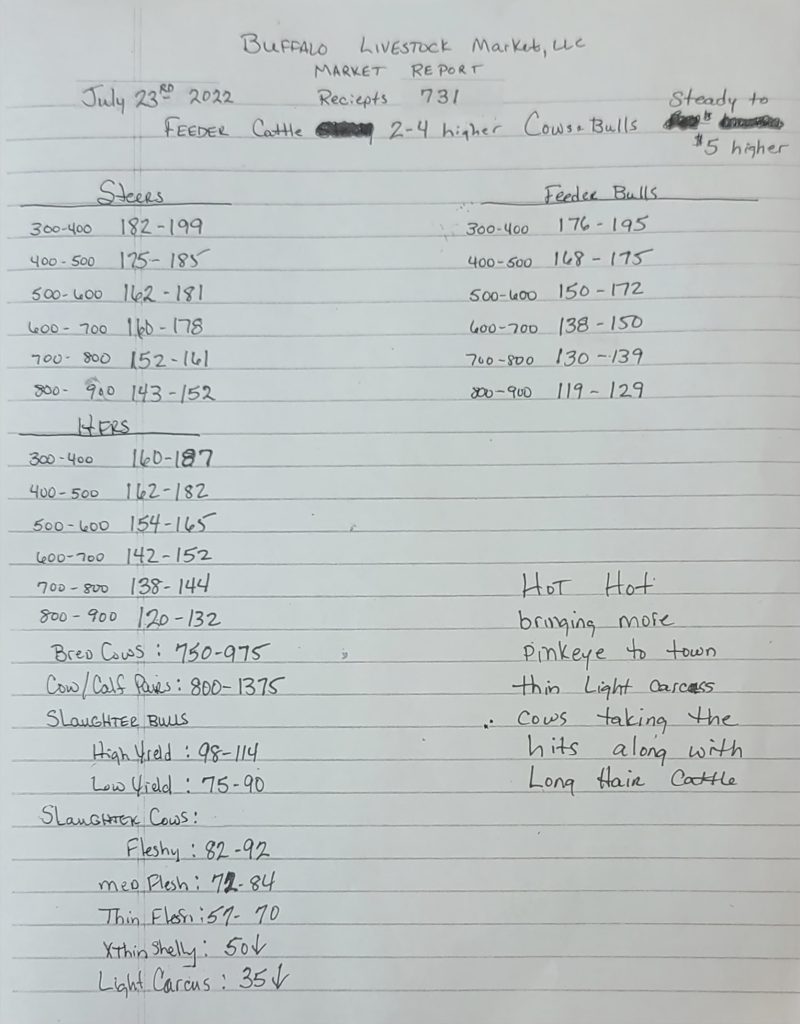 BUFFALO LIVESTOCK Market, LLC
MARKET REPORT
July 23RD 2022 Reciepts 731
FEEDER Cattle 2-4 higher Cows & Bulls Steady to
$5 higher
Steers
300-400 182-199
400-500 175-185
500-600 162-181
600-700 160-178
700-800 152-161
800-900 143-152
Feeder Bulls
300-400 176-195
400-500 168-175
500-600 150-172
600-700 138-150
700-800 130-139
800-900 119-129
HFRS
300-400 160-187
400-500 162-182
500-600 154-165
600-700 142-152
700-800 138-144
800-900 120-132
Bred Cows: 750-975
Cow/Calf Pairs: 800-1375
SLAUGHTER BULLS
High Yield: 98-114
Low Yield: 75-90
SLAUGHTER Cows:
Fleshy: 82-92
Med Flesh: 72-84
Thin Flesh: 57-70
XThin Shelly: 50↓
Light Carcus: 35↓
HOT HOT
bringing more
pinkeye to town
thin Light Carcass
Cows taking the
hits along with
Long Hair Cattle